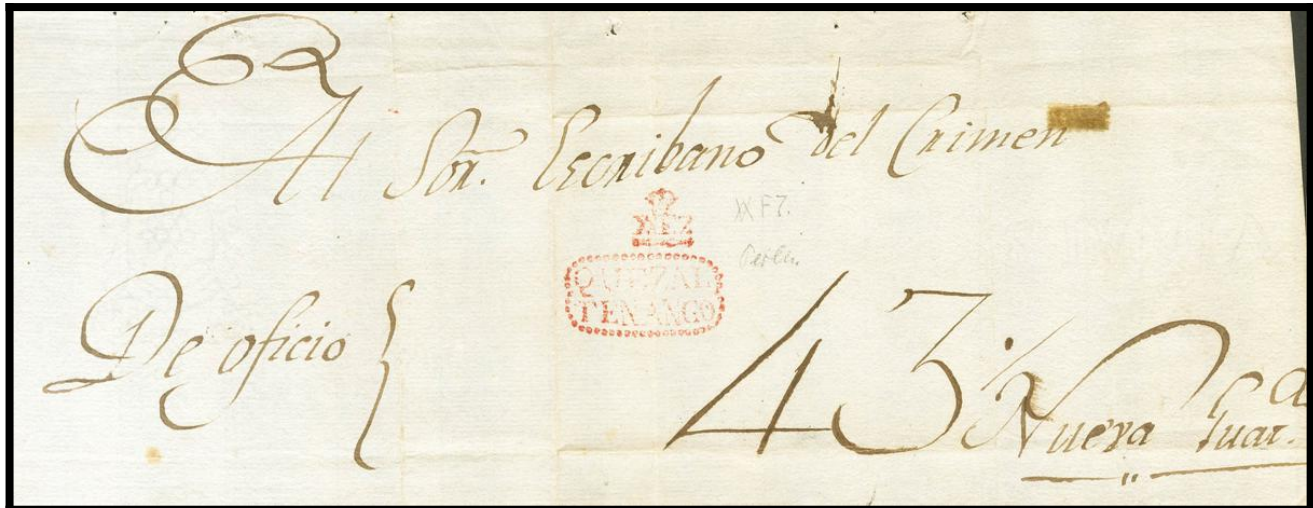 Al Sor. Escribano del Crimen
QUEZAL
TENANGO
De oficio
43
Nueva Guat.a